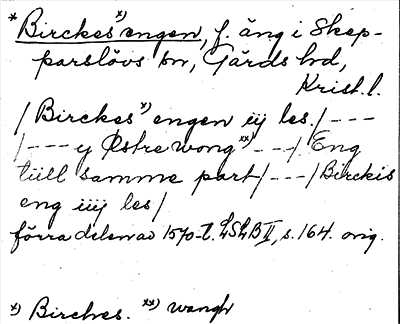 * Birckes x) engen, f. äng i Skep-
parslövs sn, Gärds hd,
Krist. l.
/Birckes x) engen iij les./---
/---y Østre wong xx)---/ Eng
tiill samme part/---/Birckis
eng iiij les/
förra delen av 1570-t. LSLB II, s. 164. orig.
x) Birches. xx) wangh